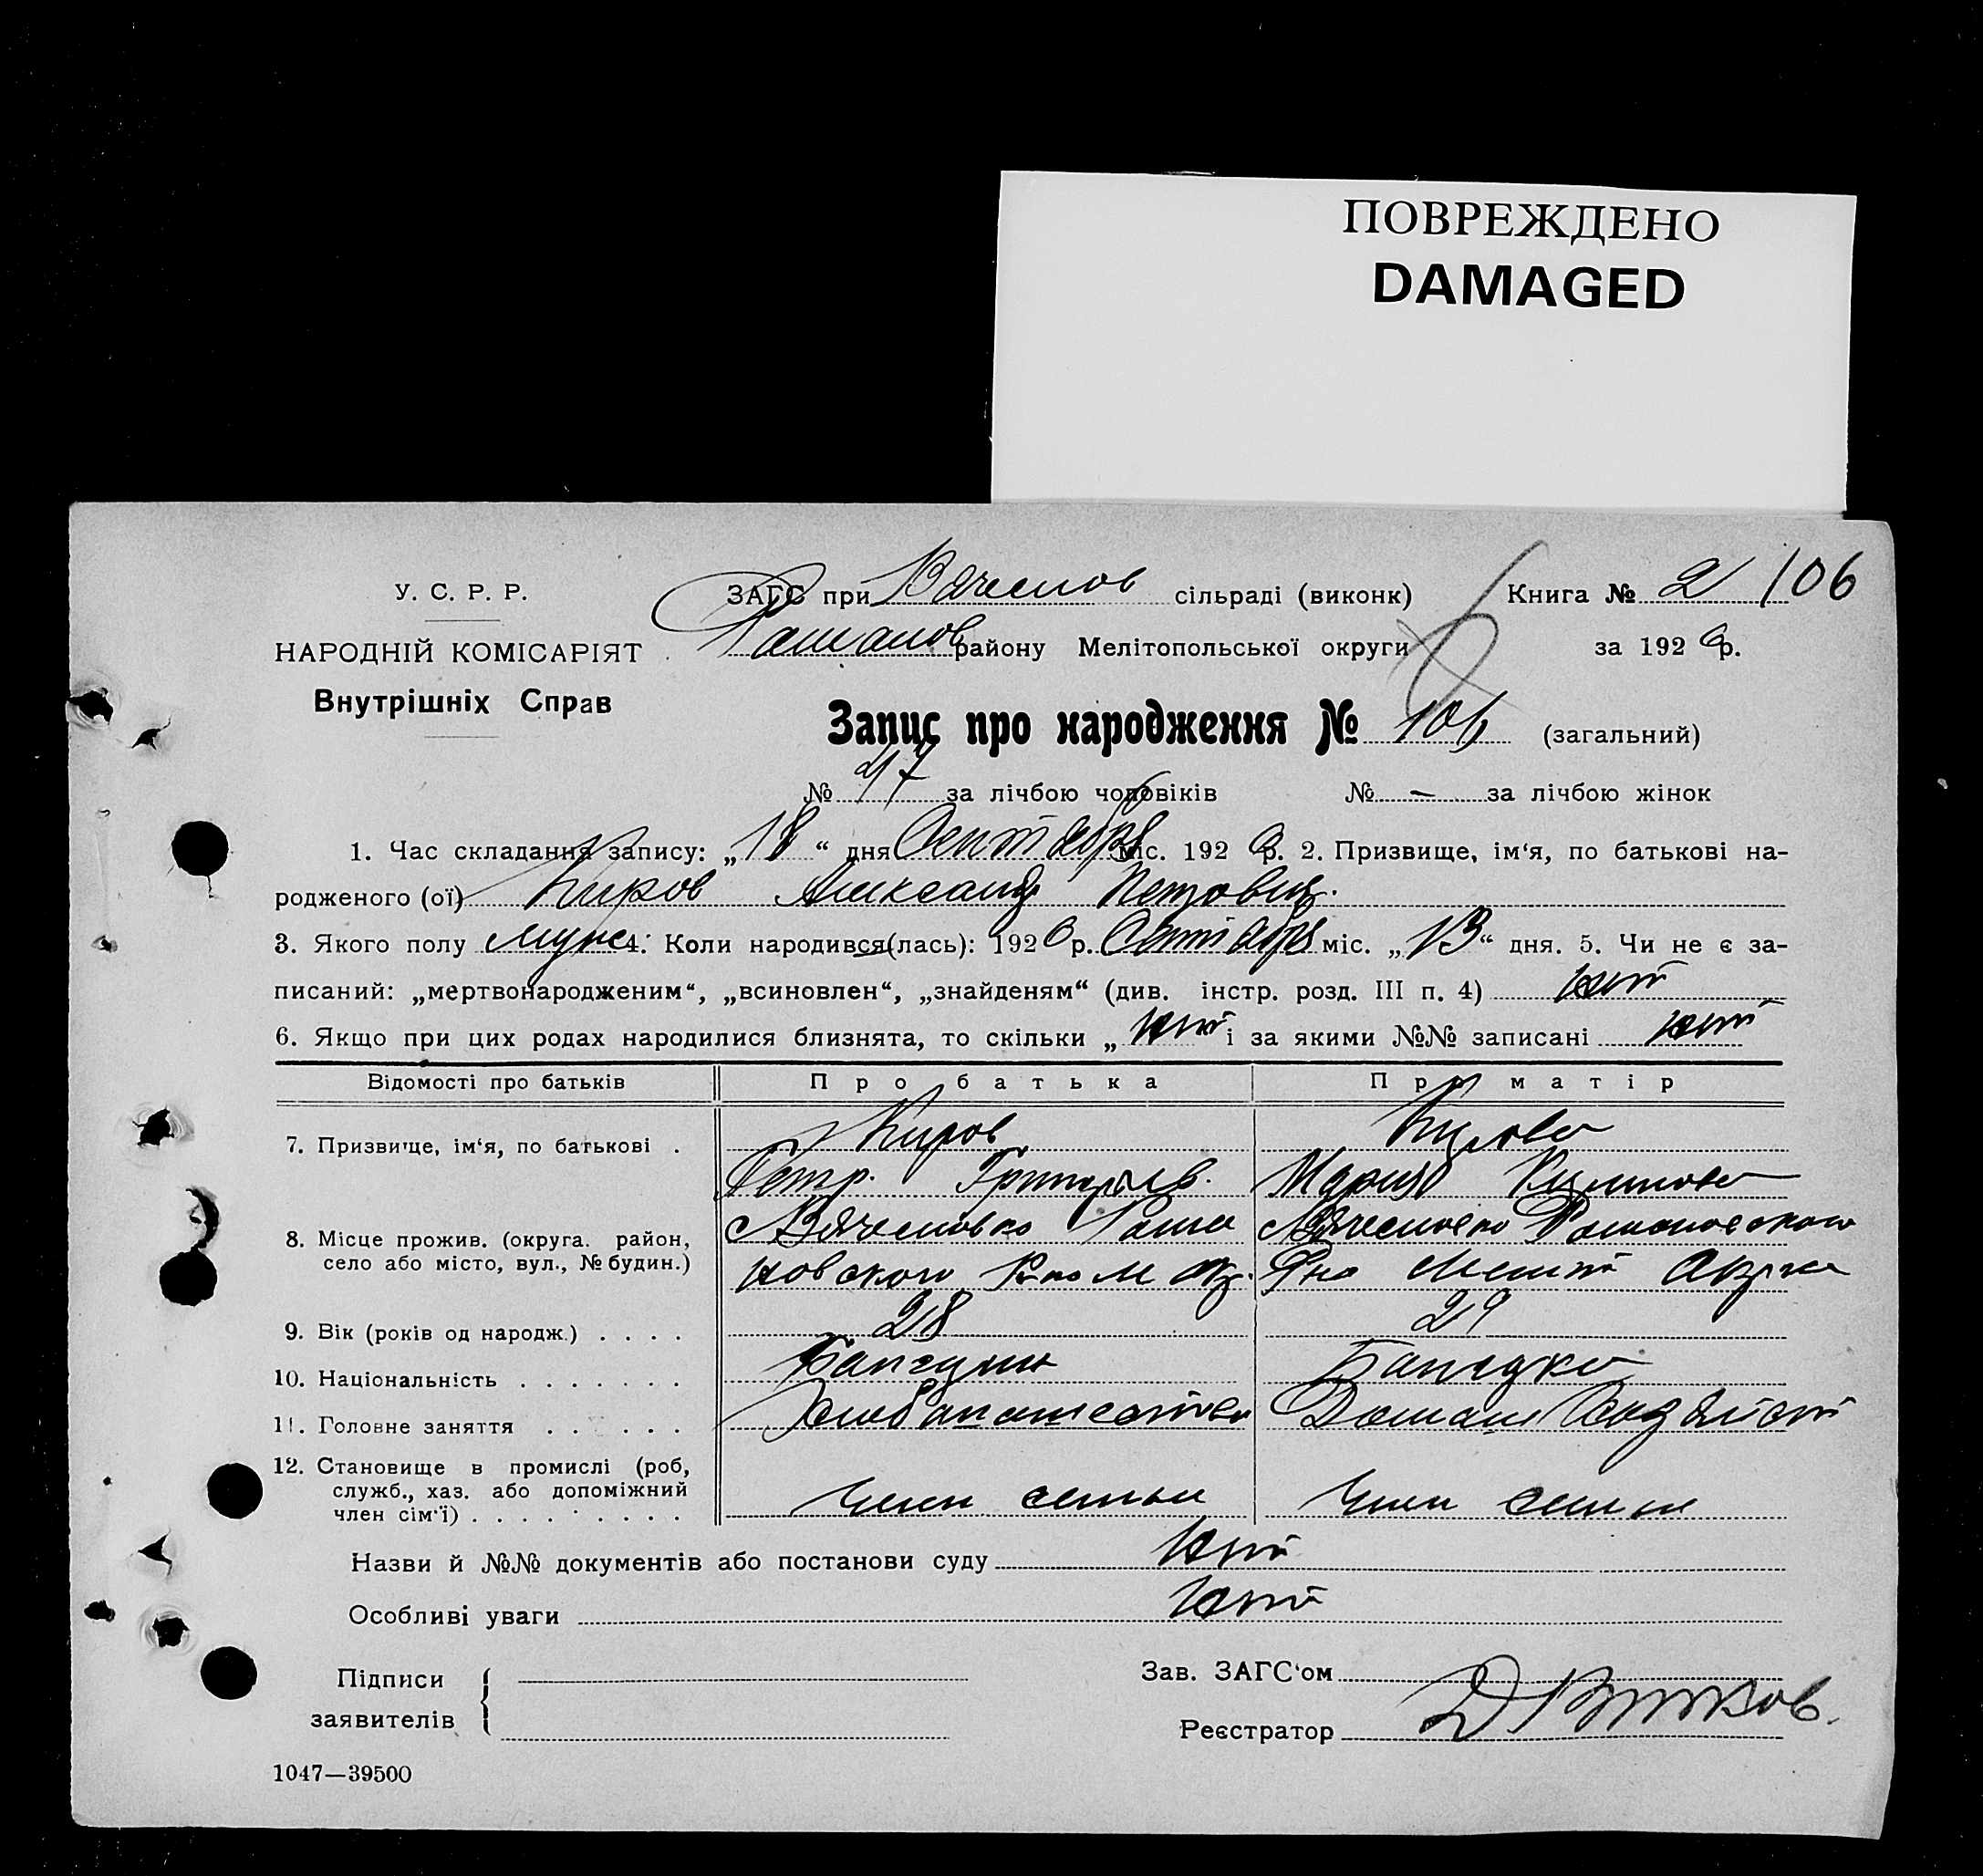 ПОВРЕЖДЕНО
DAMAGED
У. С. Р. Р.
НАРОДНІЙ КОМІСАРІЯТ
Внутрішніх Справ
ЗАГС при Вячеслов сільраді (виконк)
Романов району Мелітопольської округи
Книга № 2 106
за 1926 р.
Запис про народження № 106 (загальний)
№ 47 за лічбою чоловіків № — за лічбою жінок
1. Час складання запису: „18“ дня Сентября міс. 1926 р. 2. Призвище, ім‘я, по батькові на-
родженого (ої) Киров Александр Петрович.
3. Якого полу муж 4. Коли народився(лась): 1926 р. Сентября міс. „13“ дня. 5. Чи не є за-
писаний: „мертвонародженим“, „всиновлен“, „знайденям“ (див. інстр. розд. III п. 4) нет
6. Якщо при цих родах народилися близнята, то скільки „ нет і за якими №№ записані нет
Відомості про батьків Про батька Про матір
7. Призвище, ім‘я, по батькові . Киров Кирова
Петр. Григорьев. Мария
8. Місце прожив. (округа. район, Вячеславка Рома Романовского
село або місто, вул., № будин.) новского Р-на М Окр. Рна Мелит Округа
9. Вік (років од народж.) . . . . 28 29
10. Національність . . . . . . . Болгарин Болгарка
11. Головне заняття . . . . . . Хлебопашество Домаш
12. Становище в промислі (роб,
служб., хаз. або допоміжний
член сім‘ї) . . . . . . . . . . член семьи член семьи
Назви й №№ документів або постанови суду нет
Особливі уваги нет
Підписи
заявителів
Зав. ЗАГС‘ом
Реєстратор
1047—39500